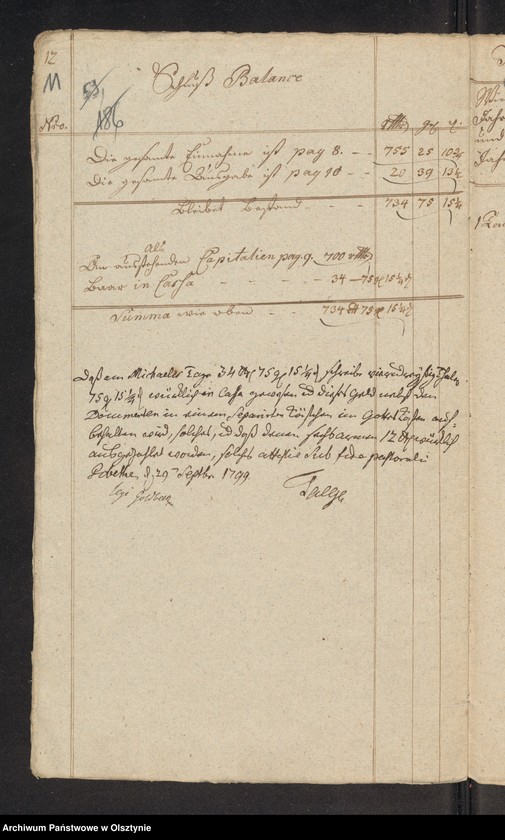 12
11
186
Schluß Balance
Nro. rthl gr
Die gesamte Einnahme ist pag 8. - - 755 25
Die gesamte Ausgabe ist pag 10 - - 20 39 13½
Bleibet Bestand - - - 734 75 15¾
Als
An ausstehenden Capitalien pag. 9. 700 rthl
Baar in Cassa - - - - 34 - 75
Summa wie oben - - 734 75
Daß am Michaelis Tage 34 75 15¾ schreibe vier und dreyßig Thaler
75 gr 15¾ würklich in Cassa gewesen und dieses Geld nebst den
Documenten in einem separaten im Gottes Kasten auf-
behalten wird, solches, und daß denen sechs armen 12 würklich
ausgezahlet worden, solches attestire sub fide pastorali
d. 29 Septbr. 1799.
Archiwum Państwowe w Olsztynie